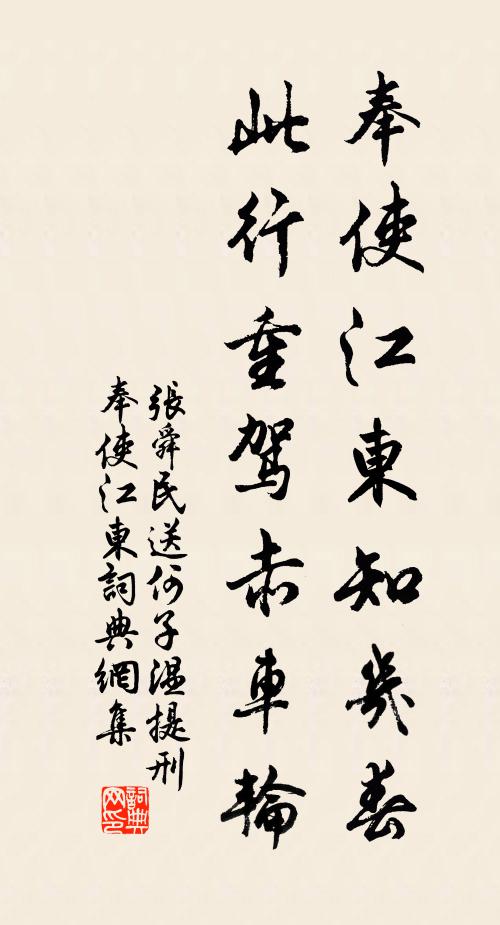 奉使江東知幾春
此行重駕赤車輪
張舜民送何子溫提刑
奉使江東詞典網集
詞典
网印